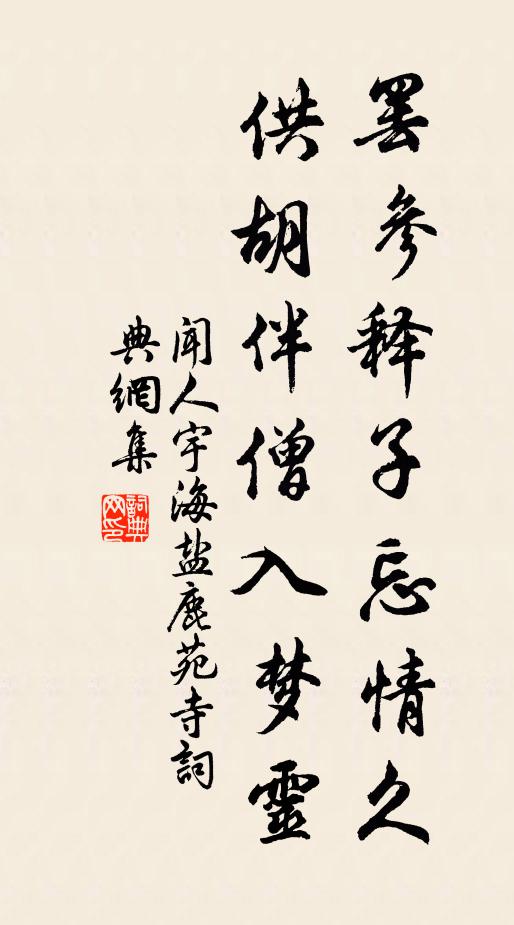 罢參释子忘情久
供胡伴僧入梦靈
闻人宇海盐鹿苑寺詞
典網集
詞典
网印